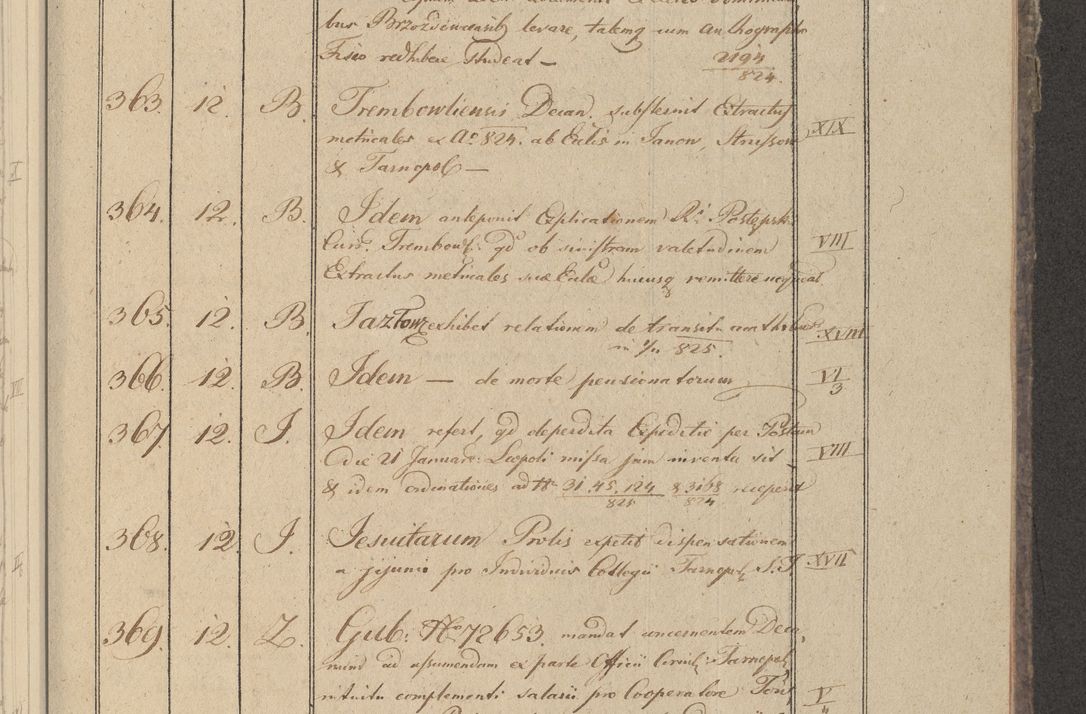 bus Brzozdowiensib9 levare, talemq cum authographo
Fisco redhibere Studeat —
2194
824.
363. 12 B. Trembowliensis Decan. substernit Extractus
metricales ex Aº 824. ab Ecclis in Janow, Strussow XIX
& Tarnopol —
364. 12. B. Idem anteponit Explicationem Rⁱ Postępski
Cur. Trembow: qd ob sinistram valetudinem VIII
Extractus metricales suæ Eclæ hucusq remittere nequeat
365. 12. B. Jazłow exhibet relationem de transitu XVIII
in 825.
366. 12. B. Idem — de morte pensionatorum VI
3
367 12. J. Idem refert, qd deperdita Expeditio per Postam
die 21 Januarii Leopoli missa jam inventa sit VIII
& idem ordinationes ad Nr 31. 45. 124 & 3168 recepit
825 824
368. 12. J. Jesuitarum Prolis expetit dispensationem
a jejunio pro Individuis Collegii Tarnopol S.J XVII
369. 12. Z. Gub: Nº 72653. mandat concernentem Deca,
num ad assumendam ex parte Officii Circul: Tarnopol
intuitu complementi salarii pro Cooperatore V